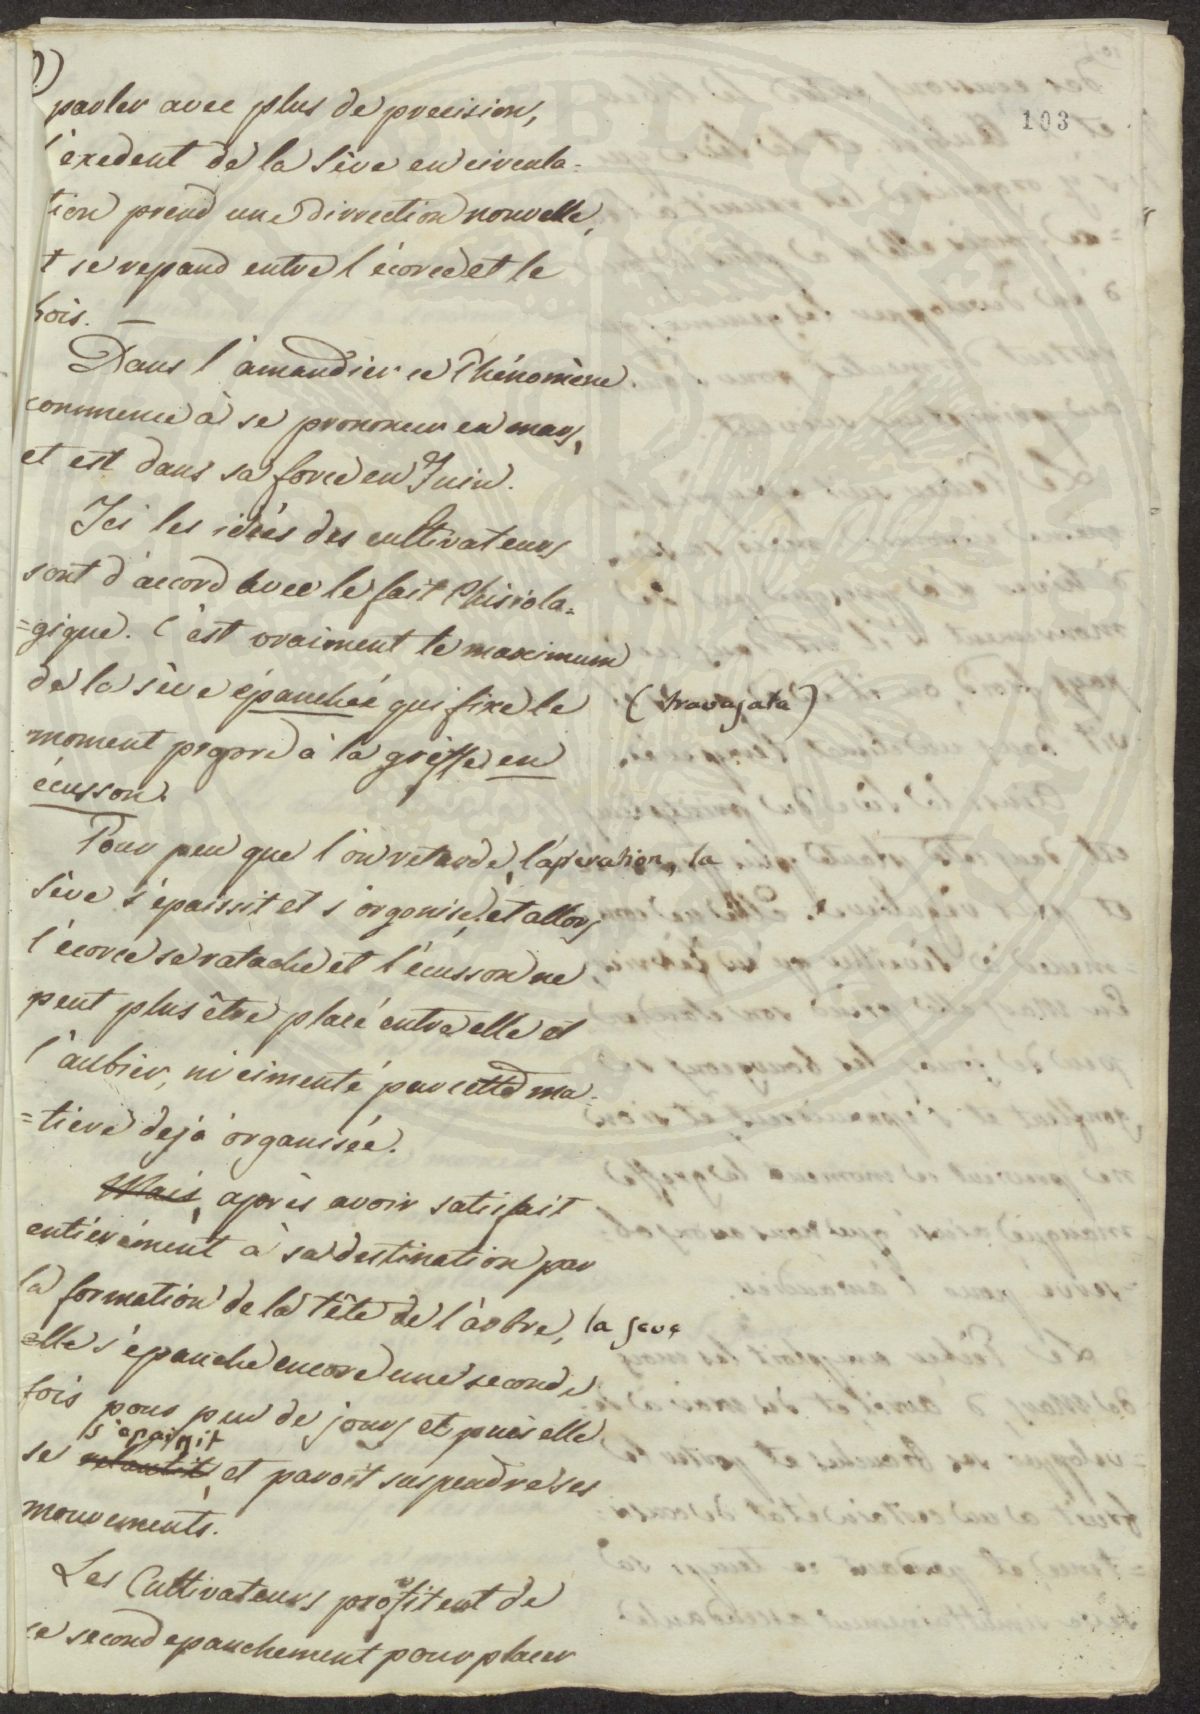 103
parler avec plus de precision,
l'exedent de la sève en circula-
tion prend une dirrection nouvelle,
t se repand entre l'écorce et le
bois. —
Dans l'amandier ce Phénomène
commence à se prononcer en mars,
et est dans sa force en Juin.
Ici les idées des cultivateurs
sont d'accord avec le fait Phisiola-
=gique. C'est vraiment le maximum
de la sève épanchée qui fixe le (travasata)
moment propre à la greffe en
écusson.
Pour peu que l'on retarde, l'aperation, la
sève s'épaissit et s'organise, et allors
l'écorce se ratache et l'écusson ne
peut plus être placé entre elle et
l'aubier, ni cimenté par cette ma-
=tiere dejà organisée.
Mais, après avoir satisfait
entiérement à sa destination par
la formation de la tête de l'arbre, la seve
elle s'épanche encore une seconde
fois pour peu de jours et puis elle
s'epaissit
se et paroit suspendre ses
mouvements.
Les Cultivateurs profitent de
ce second epanchement pour placer